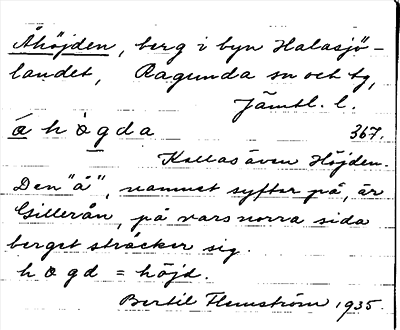 Åhöjden, berg i byn Halasjö-
landet, Ragunda sn och tg,
Jämtl. l.
á h ò g d a 367.
Kallas även Höjden.
Den "å", namnet syftar på, är
Gillerån, på vars norra sida
berget sträcker sig.
h o g d = höjd.
Bertil Flemström 1935.